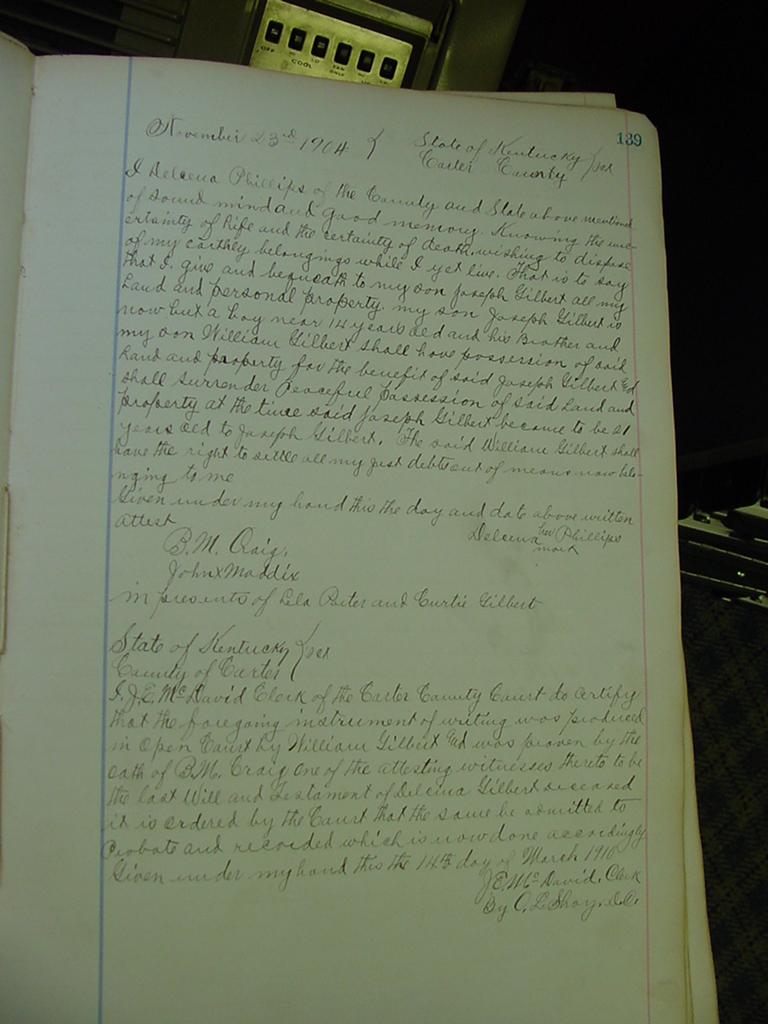 OFF COOL FAN ONLY
139
November 23rd 1904 { State of Kentucky } Sct
Carter County
I Delcena Phillips of the County and State above mentioned
of sound mind and good memory. Knowing the unc-
ertainty of life and the certainty of death, wishing to dispose
of my earthley belongings while I yet live. That is to say
that I. give and bequeath to my son Joseph Gilbert all my
Land and personal property. my son Joseph Gilbert is
now but a boy near 14 years old and his Brother and
my son William Gilbert shall have possession of said
Land and property for the benefit of said Joseph Gilbert and
shall surrender Peaceful Possession of said Land and
property at the time said Joseph Gilbert became to be 21
years old to Joseph Gilbert. The said William Gilbert shall
have the right to settle all my just debts out of means now belo-
nging to me
Given under my hand this the day and date above written
Attest Delcena her mark Phillips
B. M. Craig,
John x Maddix
in presents of Lela Porter and Curtie Gilbert
State of Kentucky { Sct
County of Carter
I. J. E. McDavid Clerk of the Carter County Court do certify
that the foregoing instrument of writing was produced
in Open Court by William Gilbert and was proven by the
oath of B.M. Craig one of the attesting witnesses thereto to be
the last Will and Testament of Delcena Gilbert deceased
it is ordered by the Court that the same be admitted to
Probate and recorded which is now done accordingly
Given under my hand this the 14th day of March 1910
J E. McDavid. Clerk
By O. L. Shoy. D.C.